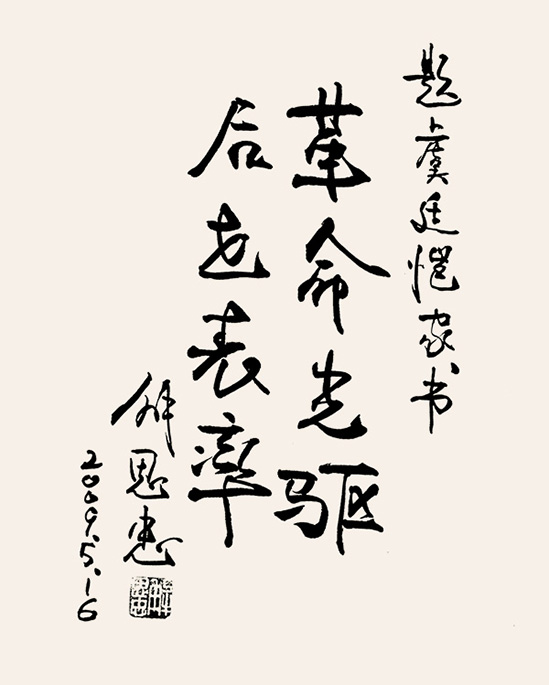 题虞廷恺家书
革命先驱
后世表率
解思忠
2009.5.16